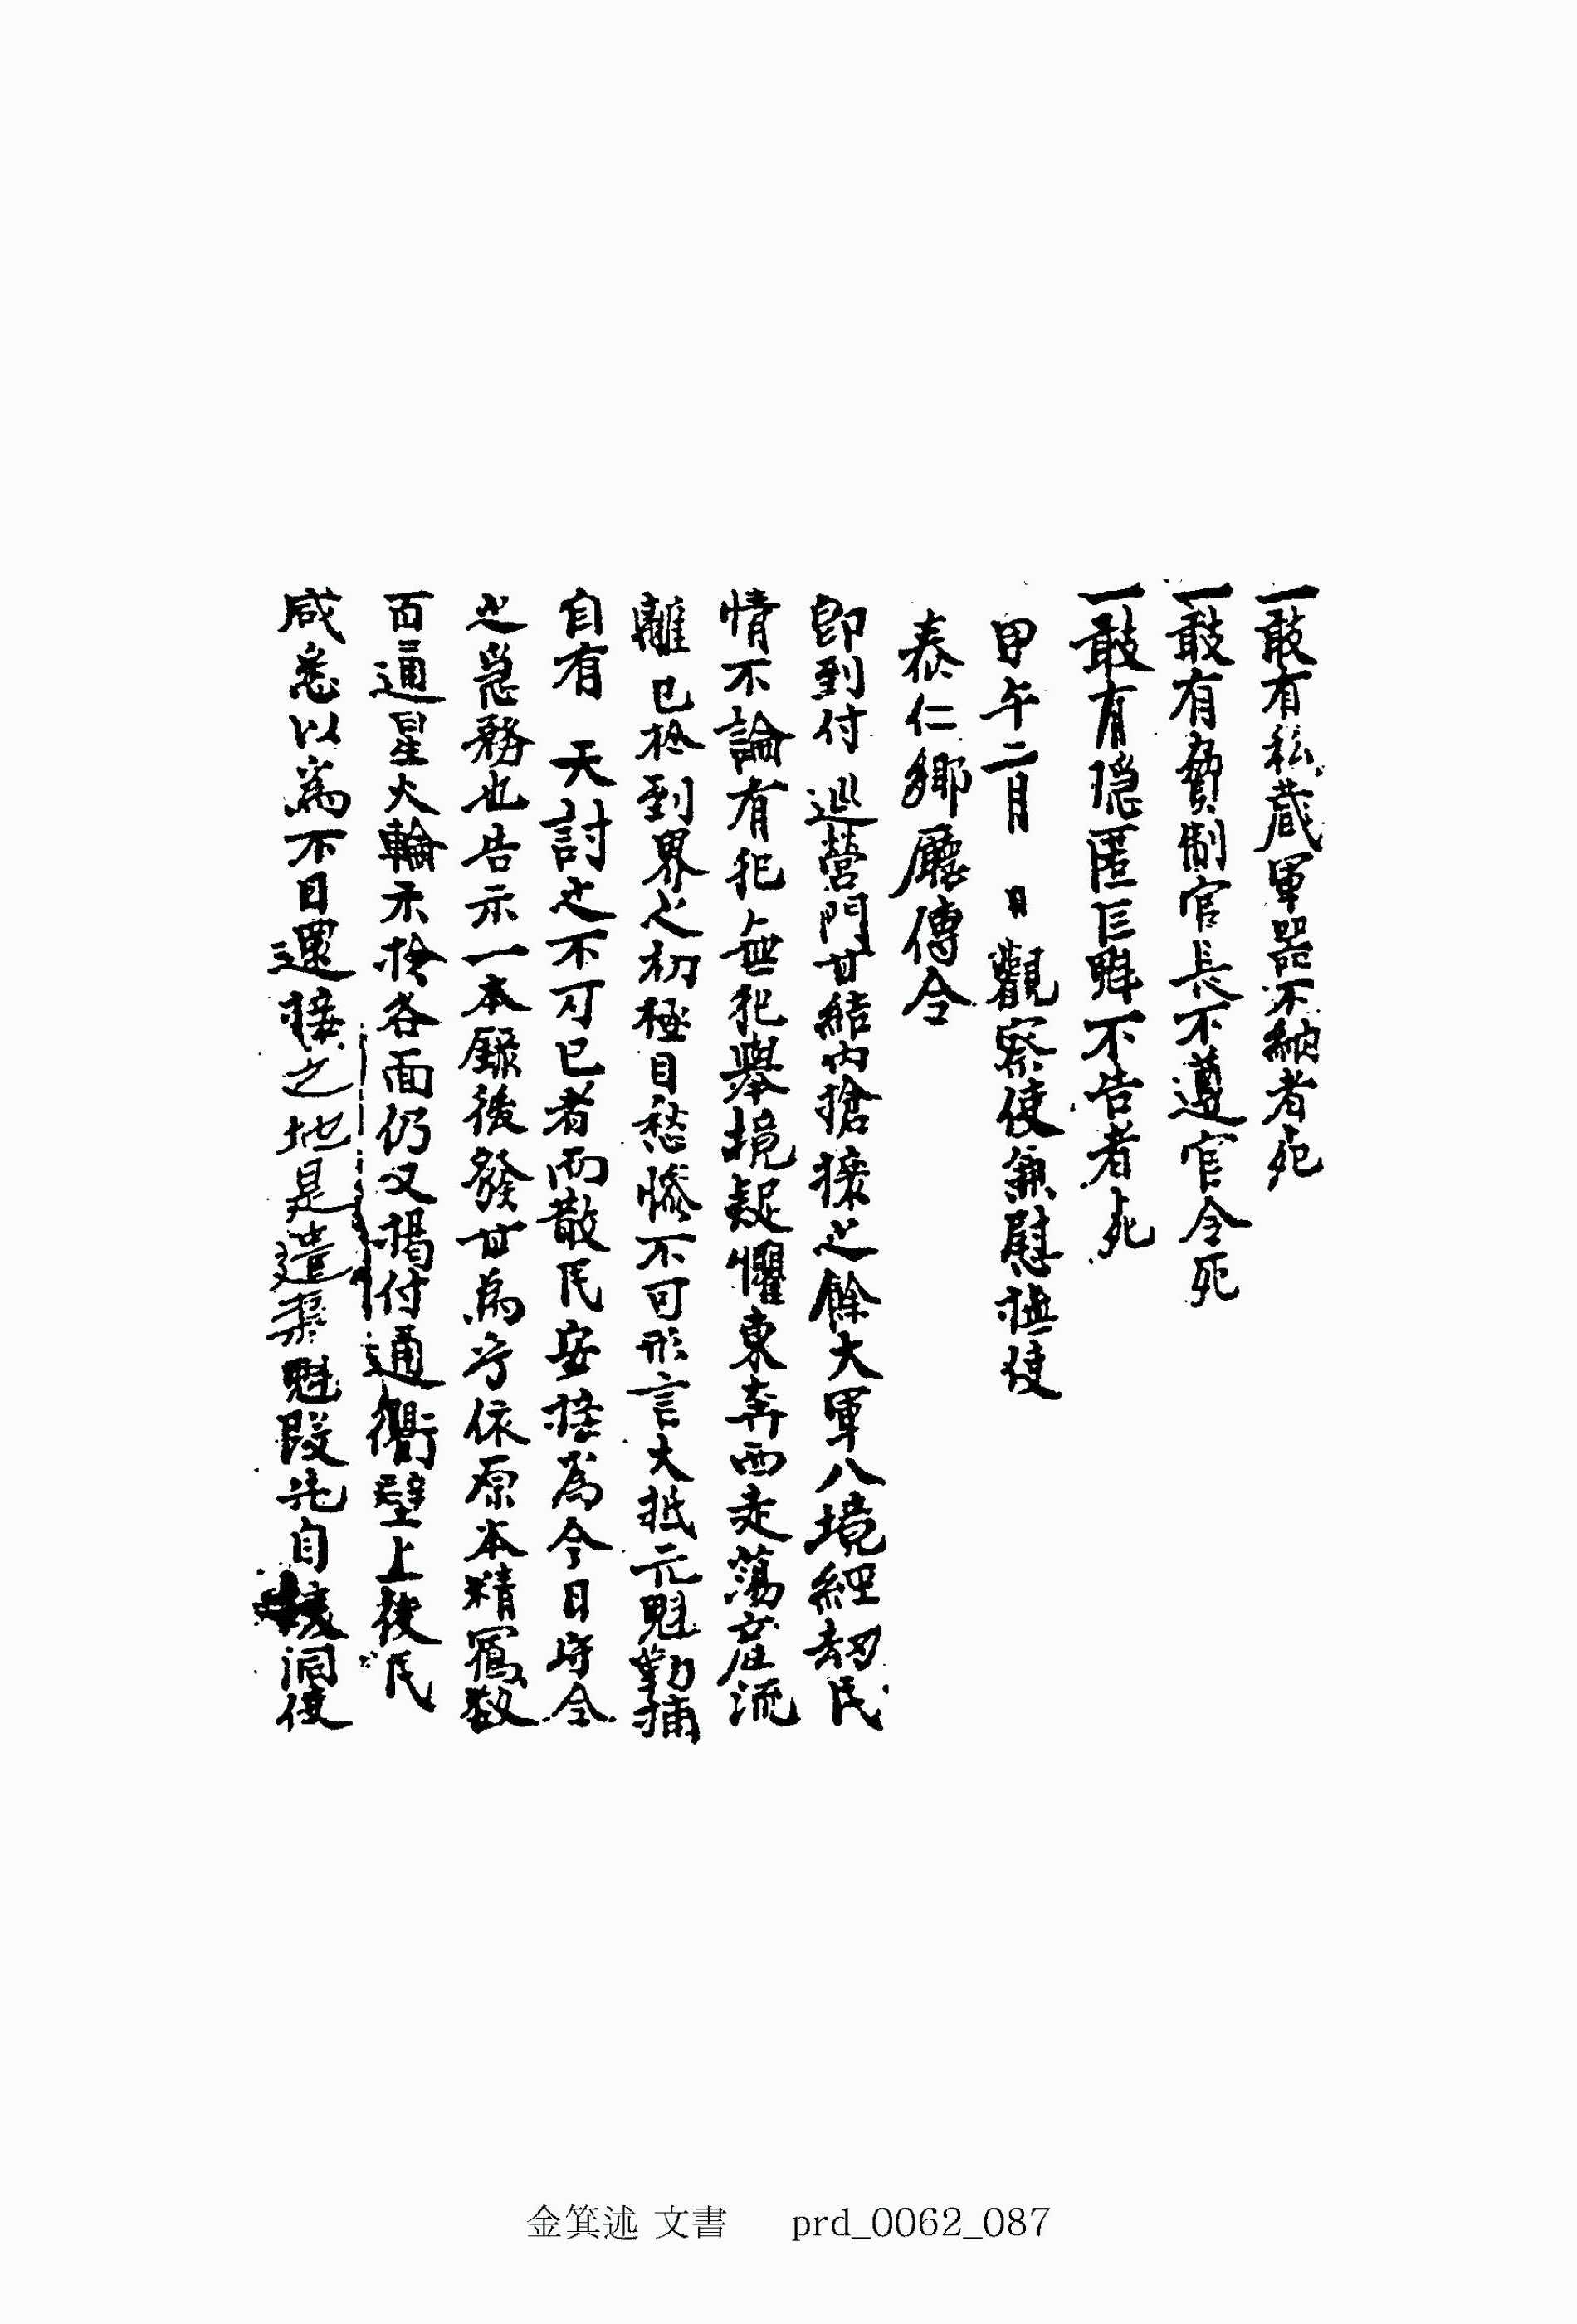 一敢有私藏軍器不納者死
一敢有脅制官長不遵官令死
一敢有隱匿巨魁不告者死
甲午二月 日觀察使兼慰撫使
泰仁鄕廳傳令
卽到付 巡營門甘結內搶攘之餘大軍入境經劫民
情不論有犯無犯擧境疑懼東奔西走蕩産流
離已於到界之初極目愁慘不可形言大抵元魁勦捕
自有 天討之不可已者而散民安接爲今日時令
之急務也告示一本錄後發甘爲乎依原本精寫數
百通星火輪示於各面仍又揭付通衢壁上使民
咸悉以爲不日還接之地是遣渠魁段先自 洞使
金箕述 文書 prd_0062_087